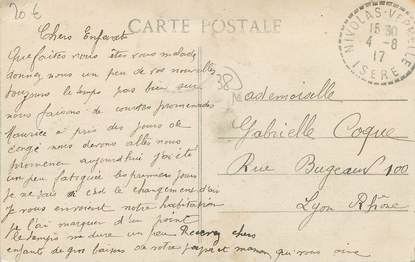 20 €
CARTE POSTALE
NIVOLAS-VERMELLE
15 30
4 - 8
17
ISERE
38
Chers Enfants
Que faites vous êtes vous malade
donnez nous un peu de vos nouvelles
toujours le temps pas bien sur
nous faisons de courtes promenades
Maurice a pris des jours de
congé nous devons allés nous
promener aujourd'hui j'ai été
un peu fatiguée les premiers jours
je ne sais si c'est le changement d'air
Je vous envoient notre habitation
je l'ai marquer d'un point
le temps me dure un peu Recevez chers
enfants de gros baisers de votre papa et maman qui vous aime
Mademoiselle
Gabrielle Coque
Rue Bugeaud 100
Lyon Rhône